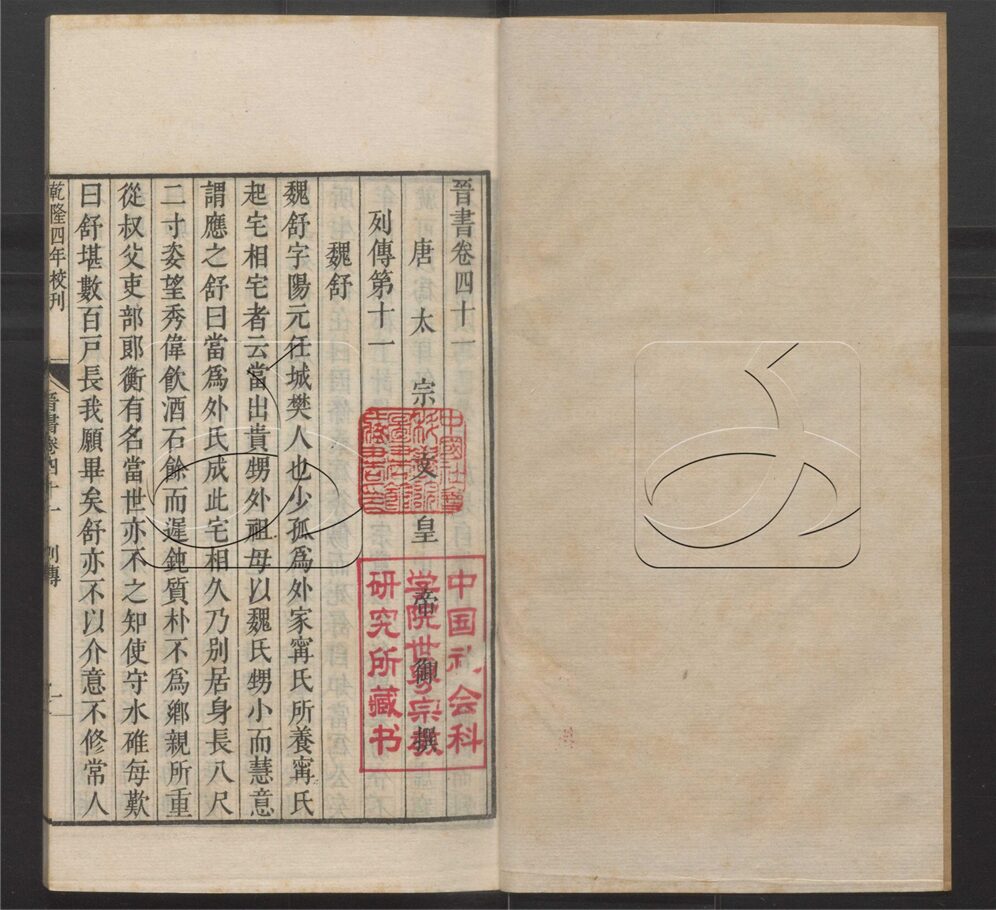 晉書卷四十一
唐太宗文皇帝御撰
列傳第十一
魏舒
魏舒字陽元任城樊人也少孤爲外家甯氏所養甯氏
起宅相宅者云當出貴甥外祖母以魏氏甥小而慧意
謂應之舒曰當爲外氏成此宅相久乃別居身長八尺
二寸姿望秀偉飮酒石餘而遲鈍質朴不爲鄉親所重
從叔父吏部郞衡有名當世亦不之知使守水碓每歎
曰舒堪數百戸長我願畢矣舒亦不以介意不修常人
乾隆四年校刊
晉書卷四十一
列傳
一
中國社會
科學院
中国社会科
学院世界宗教
研究所藏书